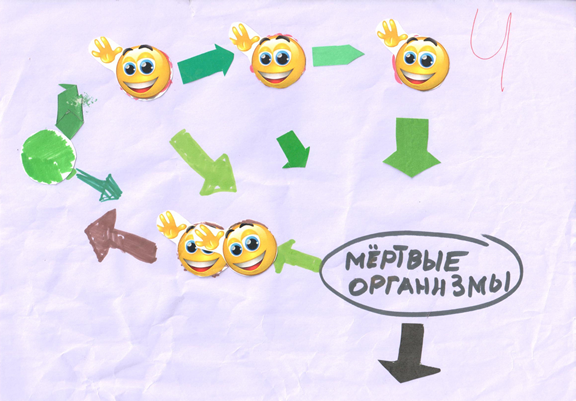 МЁРТВЫЕ
ОРГАНИЗМЫ